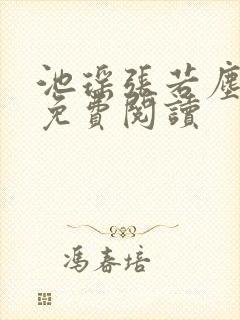 池瑶張若塵
免費閱讀
馮春培